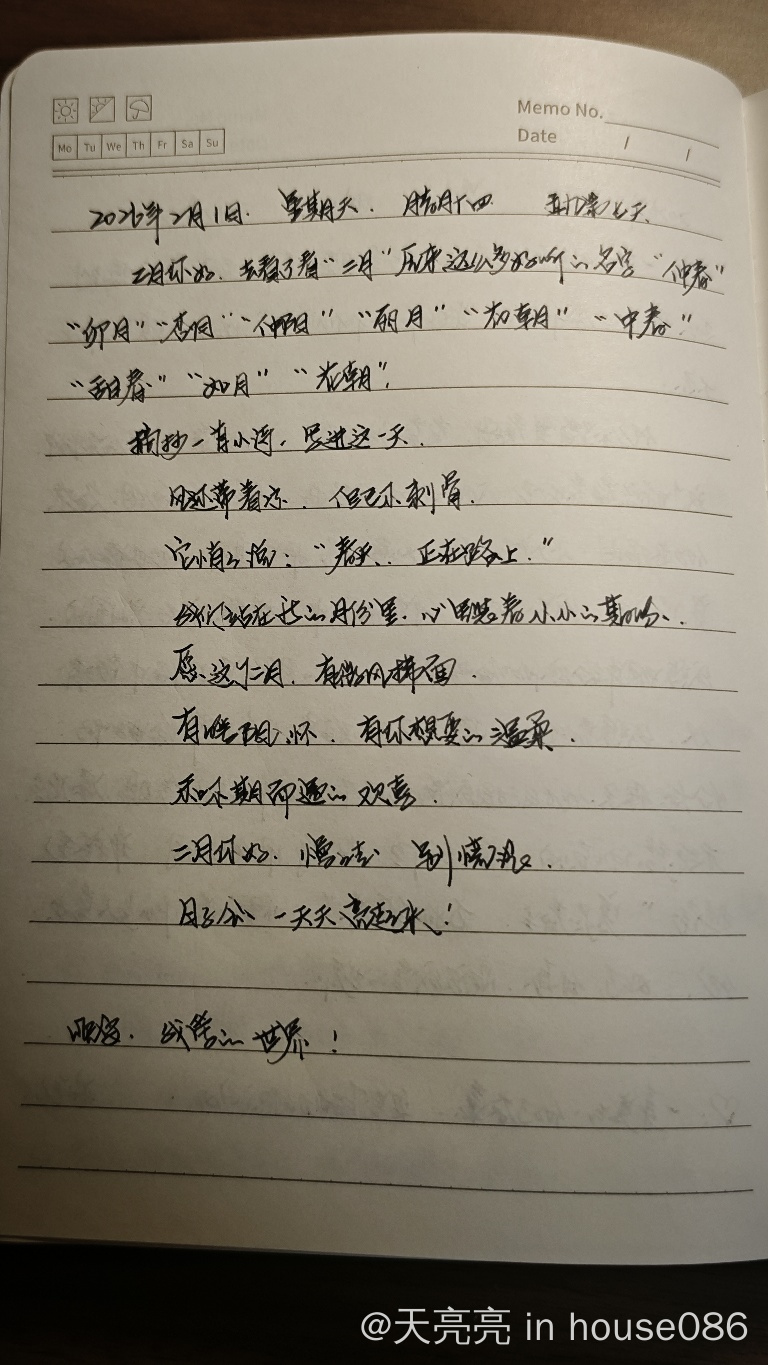 Memo No.
Date / /
Mo Tu We Th Fr Sa Su
2026年2月1日. 星期天. 腊月十四
二月你好. 去看了看“二月”原来这么多好听的名字“仲春”
“卯月”“杏月”“仲阳”“丽月”“初朝月”“中春”
“甜春”“如月”“花朝”.
摘抄一首小诗. 写进这一天.
风还带着凉. 但已不刺骨.
它悄悄说:“春天. 正在路上.”
我们站在新的月份里. 心里装着小小的期盼.
愿这个二月. 有微风拂面.
有暖阳入怀. 有你想要的温柔.
和不期而遇的欢喜.
二月你好. 慢慢走 别慌张.
日子会 一天天亮起来!
晚安. 我的世界!
@天亮亮 in house086